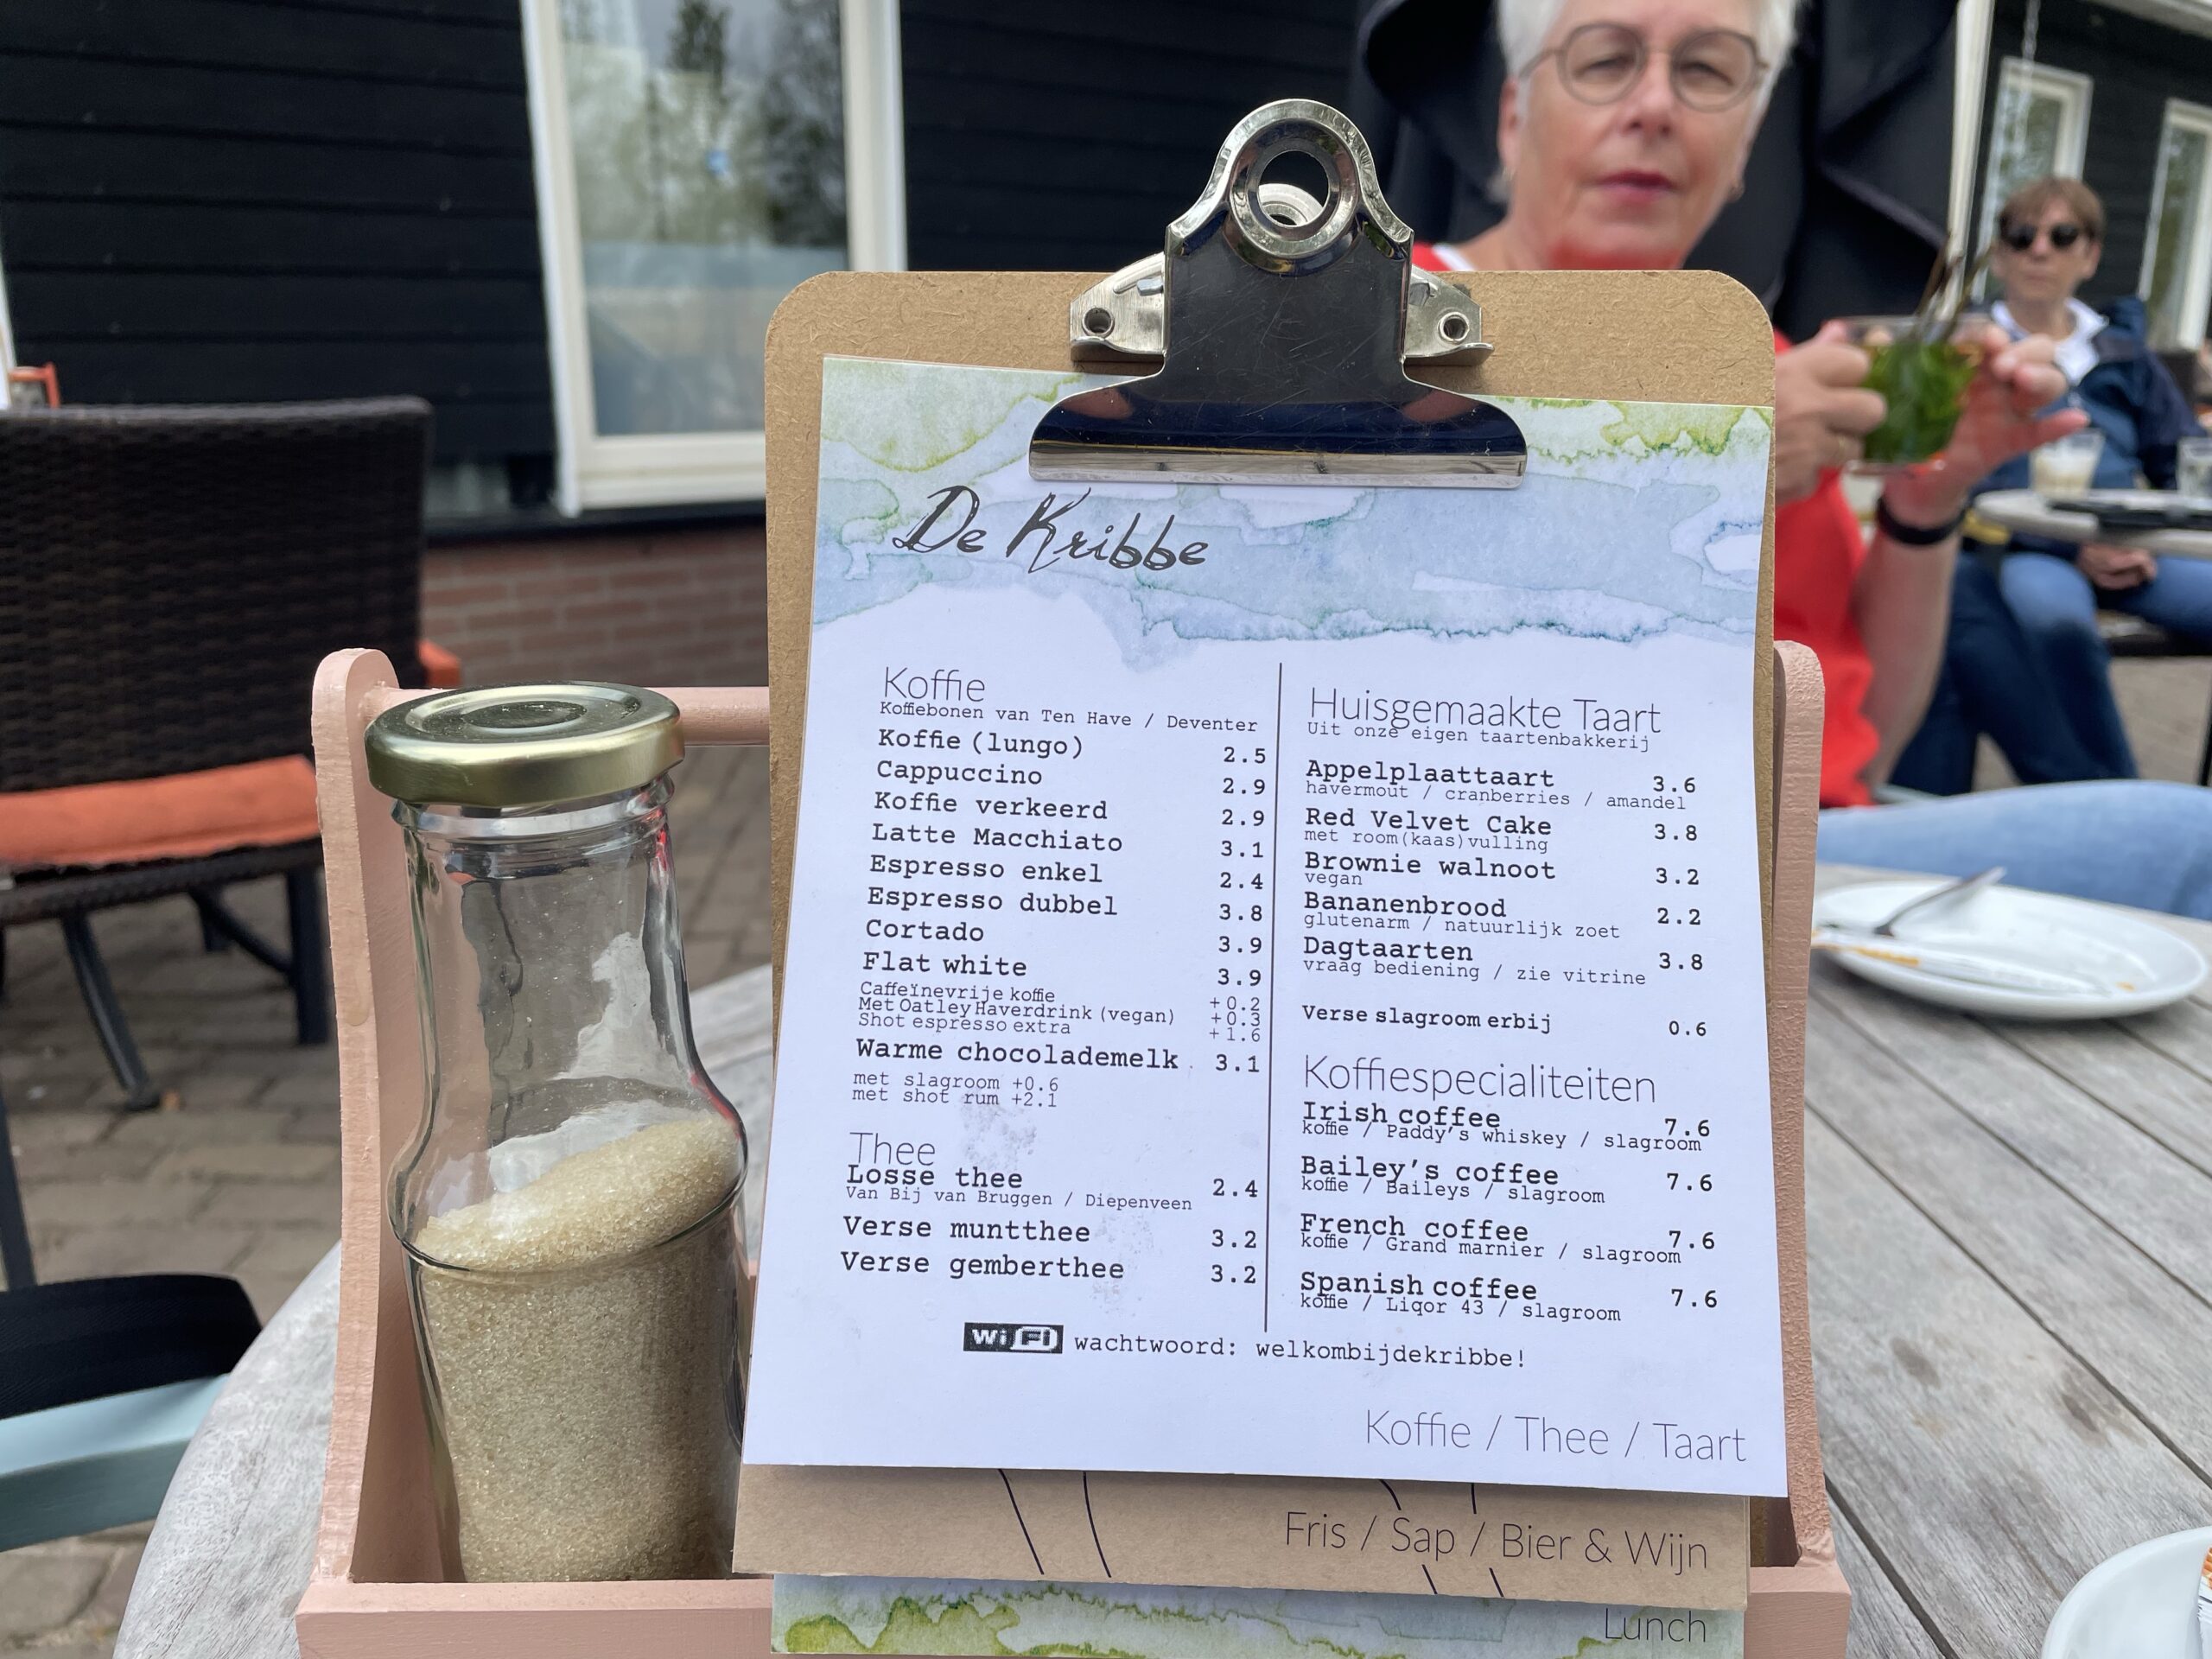 De Kribbe
Koffie
Koffiebonen van Ten Have / Deventer
Koffie (lungo) 2.5
Cappuccino 2.9
Koffie verkeerd 2.9
Latte Macchiato 3.1
Espresso enkel 2.4
Espresso dubbel 3.8
Cortado 3.9
Flat white 3.9
Caffeïnevrije koffie +0.2
Met Oatley Haverdrink (vegan) +0.3
Shot espresso extra +1.6
Warme chocolademelk 3.1
met slagroom +0.6
met shot rum +2.1
Thee
Losse thee 2.4
Van Bij van Bruggen / Diepenveen
Verse muntthee 3.2
Verse gemberthee 3.2
Huisgemaakte Taart
Uit onze eigen taartenbakkerij
Appelplaattaart 3.6
havermout / cranberries / amandel
Red Velvet Cake 3.8
met room(kaas)vulling
Brownie walnoot 3.2
vegan
Bananenbrood 2.2
glutenarm / natuurlijk zoet
Dagtaarten 3.8
vraag bediening / zie vitrine
Verse slagroom erbij 0.6
Koffiespecialiteiten
Irish coffee 7.6
koffie / Paddy's whiskey / slagroom
Bailey's coffee 7.6
koffie / Baileys / slagroom
French coffee 7.6
koffie / Grand marnier / slagroom
Spanish coffee 7.6
koffie / Liqor 43 / slagroom
Wi Fi wachtwoord: welkombijdekribbe!
Koffie / Thee / Taart
Fris / Sap / Bier & Wijn
Lunch